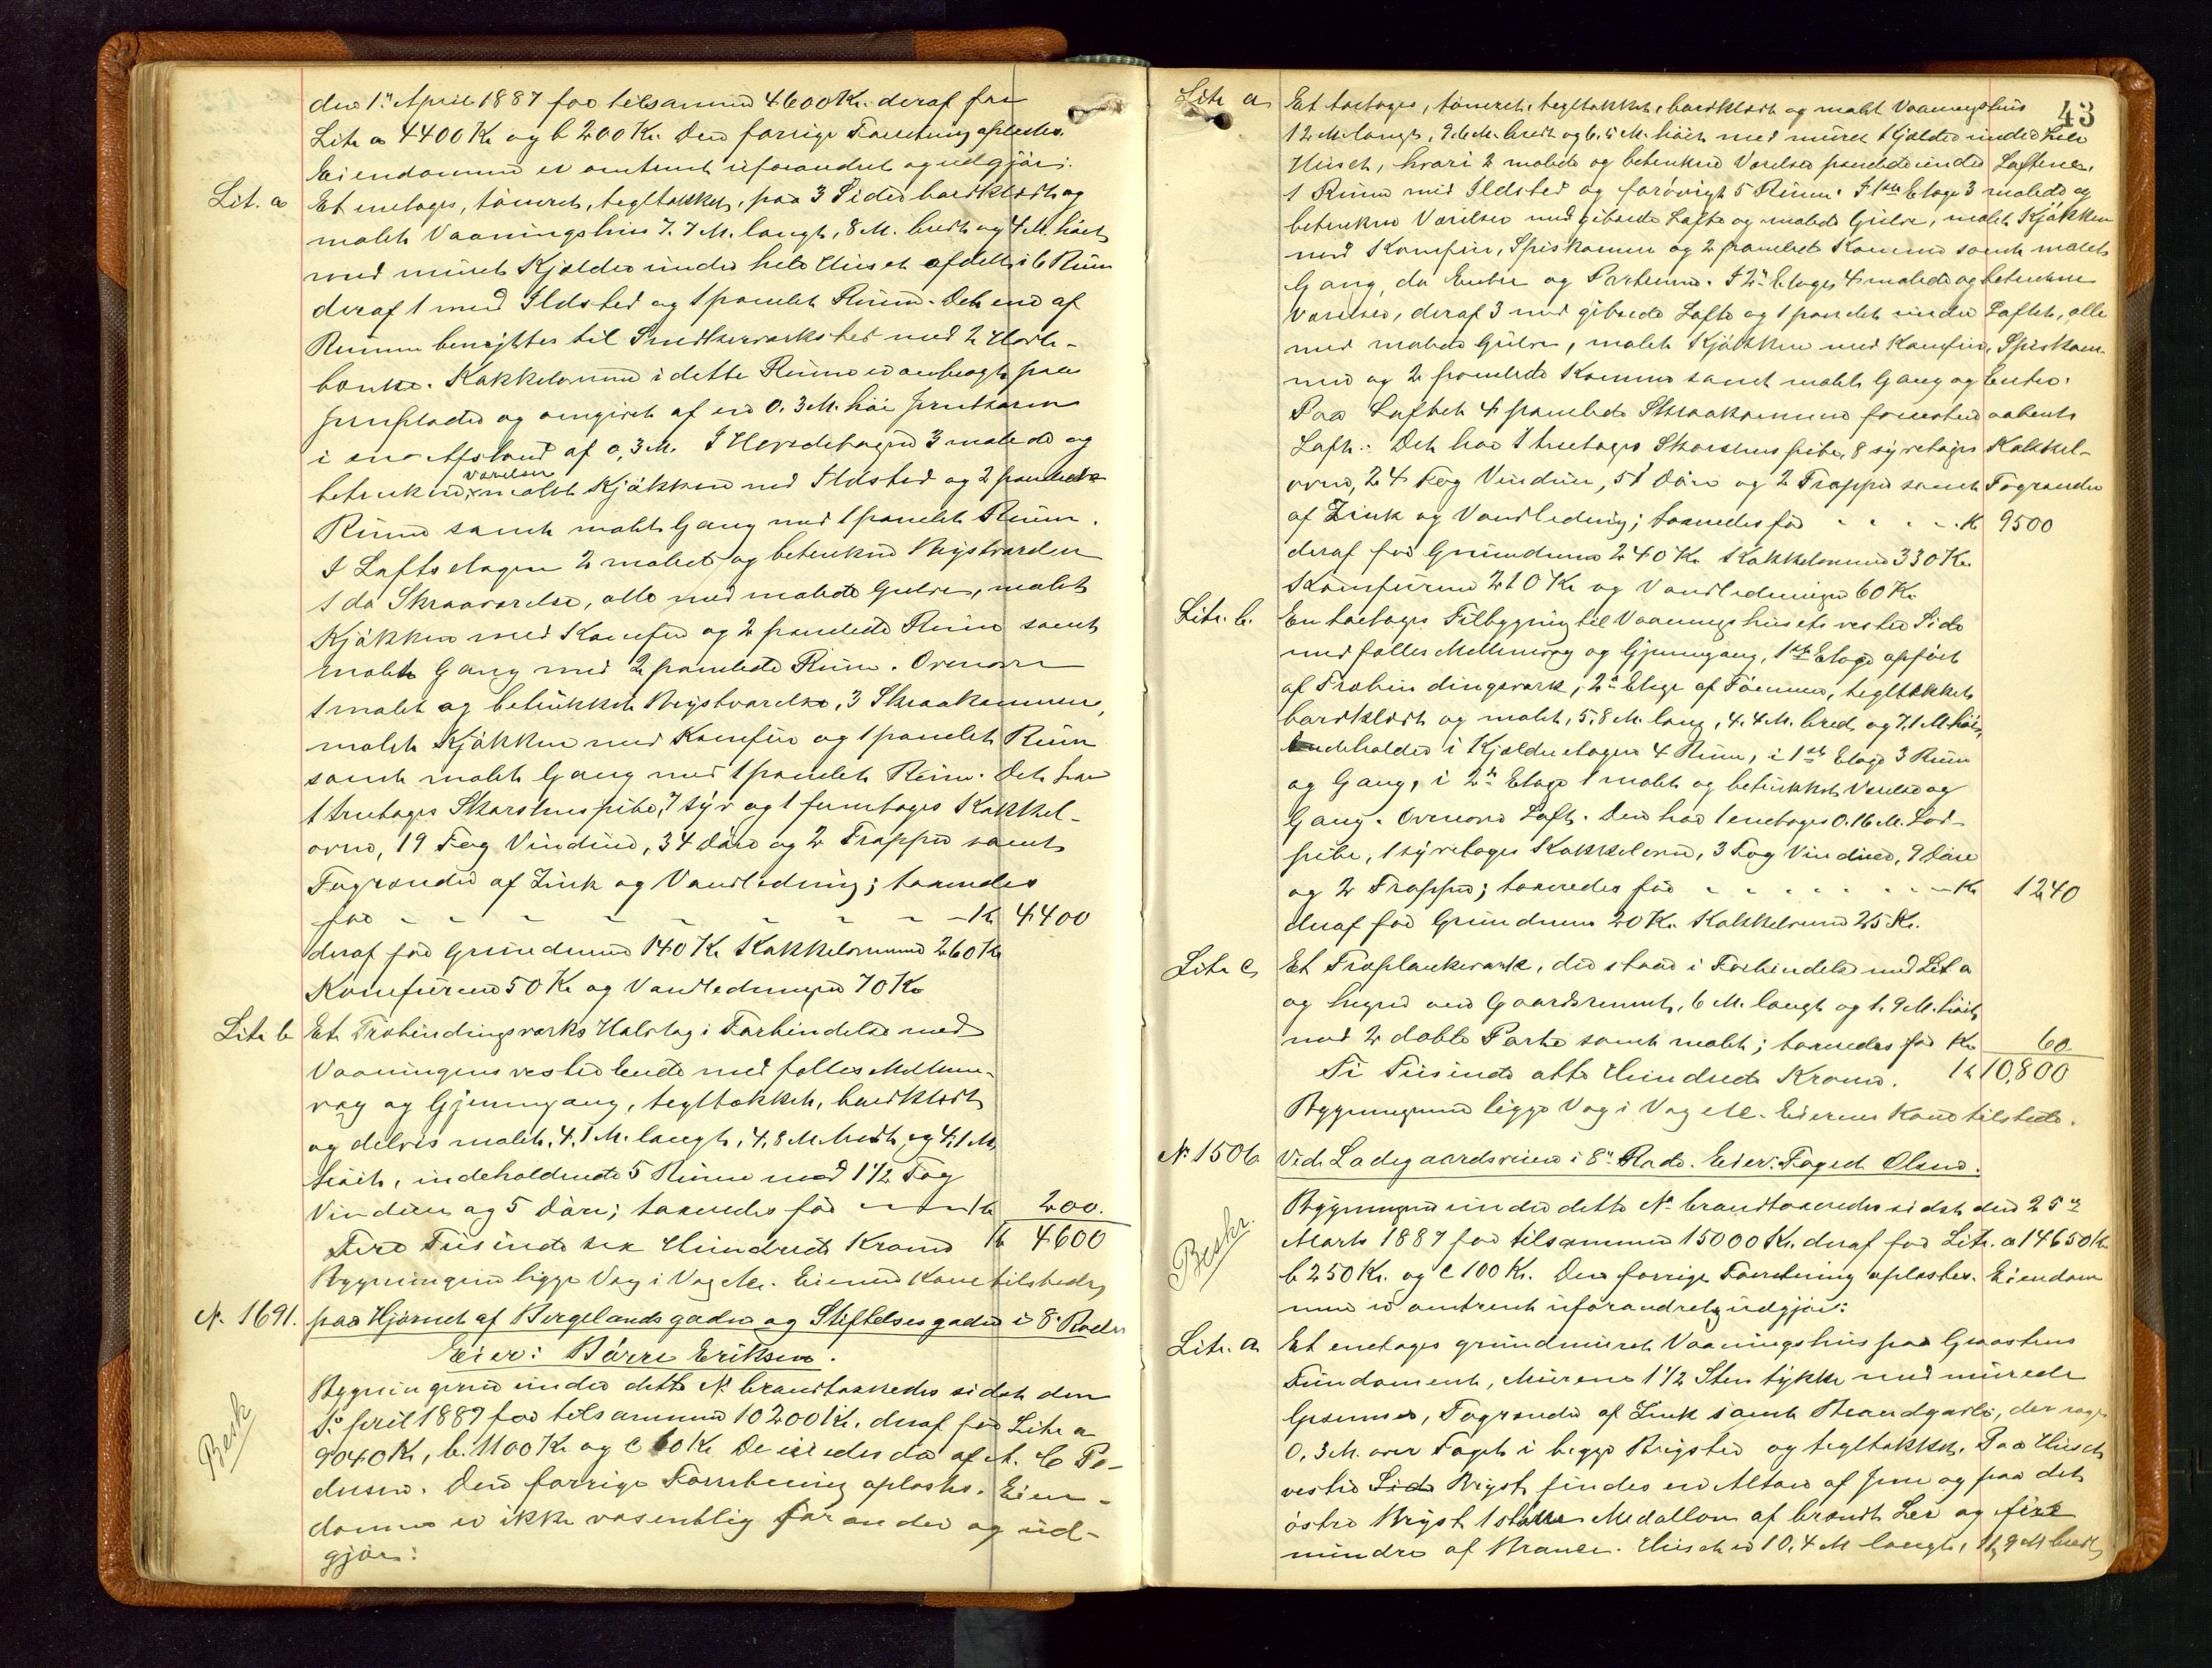 den 1ste April 1887 for tilsammen 4600 Kr. deraf for
Litr a 4400 Kr og b 200 Kr. Den forrige Forretning oplæstes.
Eiendommen er omtrent uforandret og udgjør:
Lit. a Et enetages, tømret, tegltækket, paa 3 Sider bordklædt og
malet Vaaningshus 7.7 M. langt, 8 M. bredt og 4 M. høit
med muret Kjælder under hele Huset afdelt i 6 Rum
deraf 1 med Ildsted og 1 panelet Rum. Det ene af
Rummene benyttes til Snedkerværksted med 2 Høvle-
bænke. Kakkelovnen i dette Rum er anbragt paa
Jernplader og omgivet af en 0.3 M. høi Jernkarm
i en Afstand af 0,3 M. I Hovedetagen 3 malede og
betrukne Værelser, malet Kjøkken med Ildsted og 2 panelede
Rum samt malet Gang med 1 panelet Rum.
I Loftsetagen 2 malede og betrukne Brystværelser
1 do Skraaværelse, alle med malede Gulve, malet
Kjøkken med Komfur og 2 panelede Rum samt
malet Gang med 2 panelede Rum. Ovenover
1 malet og betrukket Brystværelse, 3 Skraakammere,
malet Kjøkken med Komfur og 1 panelet Rum
samt malet Gang med 1 panelet Rum. Det har
1 treetages Skorstenspibe, 7 syv og 1 femetages Kakkel-
ovne, 19 Fag Vinduer, 34 Døre og 2 Trapper samt
Tagrender af Zink og Vandledning; taxeredes
for - - - - - - - - Kr 4400
deraf for Grundmuren 140 Kr Kakkelovnene 260 Kr
Komfurene 50 Kr og Vandledningen 70 Kr
Litr b Et Træbindingsværks Halvtag i Forbindelse med
Vaaningens vestre Ende med fælles Mellem-
væg og Gjennemgang, tegltækket, bordklædt
og delvis malet, 4.1 M. langt, 4.8 M. bredt og 4.1 M.
høit, indeholdende 5 Rum med 1 1/2 Fag
Vinduer og 5 Døre; taxeredes for - - - Kr 200.
Fire Tusinde sex Hundrede Kroner Kr 4600
Bygningerne ligge Væg i Væg &c. Eierens Kone tilstede
N. 1691. paa Hjørnet af Bergelandsgaden og Stiftelsesgaden i 8de Rode
Eier: Børre Eriksen.
Besk Bygningerne under dette No brandtaxeredes sidst den
1ste April 1887 for tilsammen 10200 Kr. deraf for Litr a
9040 Kr, b. 1100 Kr og c 60 Kr De eiedes da af A. C. Pe-
dersen. Den forrige Forretning oplæstes. Eien-
dommen er ikke væsentlig forandret og ud-
gjør:
43
Litr a Et toetages, tømret, tegltækket, bordklædt og malet Vaaningshus
12 M. langt, 9.6 M. bredt og 6.5 M. høit med muret Kjælder under hele
Huset, hvori 2 malede og betrukne Værelser panelede under Loftene,
1 Rum med Ildsted og forøvrigt 5 Rum. I 1ste Etage 3 malede og
betrukne Værelser med gibsede Lofte og malede Gulve, malet Kjøkken
med Komfur, Spiskammer og 2 panelede Kammere samt malet
Gang, do Entre og Portrum. I 2den Etage 4 malede og betrukne
Værelser, deraf 3 med gibsede Lofte og 1 panelet under Loftet, alle
med malede Gulve, malet Kjøkken med Komfur, Spiskam-
mer og 2 panelede Kammere samt malet Gang og Entre.
Paa Loftet 4 panelede Skraakammere forresten aabent
Loft. Det har 1 treetages Skorstenspibe, 8 syvetages Kakkel-
ovne, 24 Fag Vinduer, 51 Døre og 2 Trapper samt Tagrender
af Zink og Vandledning; taxeredes for - - - - Kr 9500
deraf for Grundmuren 240 Kr. Kakkelovnene 330 Kr.
Komfurene 210 Kr og Vandledningen 60 Kr.
Litr. b. En toetages Tilbygning til Vaaningshusets vestre Side
med fælles Mellemvæg og Gjennemgang, 1ste Etage opført
af Træbindingsværk, 2den Etage af Tømmer, tegltækket
bordklædt og malet, 5.8 M. lang, 4.4 M. bred, og 7.1 M. høi,
indeholder i Kjælderetagen 4 Rum, i 1ste Etage 3 Rum
og Gang, i 2den Etage 1 malet og betrukket Værelse og
Gang. Ovenover Loft. Den har 1 enetages 0.16 M. Lod-
pibe, 1 syvetages Kakkelovn, 3 Fag Vinduer, 9 Døre
og 2 Trapper; taxeredes for - - - - - - Kr 1240
deraf for Grundmuren 20 Kr. Kakkelovnen 25 Kr.
Litr c Et Træplankeværk, der staar i Forbindelse med Lit a
og hegner om Gaardsrummet, 6 M. langt og 1.9 M. høit
med 2 doble Porte samt malet; taxeredes for Kr 60
Ti Tusinde otte Hundrede Kroner. Kr 10,800
Bygningerne ligge Væg i Væg &c. Eierens Kone tilstede.
No 1506 Ved Ladegaardsveien i 8de Rode. Eier: Foged Olsen.
Beskr. Bygningerne under dette No brandtaxeredes sidst den 25de
Marts 1887 for tilsammen 15000 Kr. deraf for Litr. a 14650 Kr
b 250 Kr. og c 100 Kr. Den forrige Forretning oplæstes. Eiendom-
men er omtrent uforandret og udgjør:
Litr. a Et enetages grundmuret Vaaningshus paa Graastens
Fundament, Murene 1 1/2 Sten tykke med murede
Gesimser, Tagrender af Zink samt Brandgavle, der rage
0,3 M. over Taget i begge Bryster og tegltækket. Paa Husets
vestre Side Bryst findes en Altan af Jern og paa det
østre Bryst 1 større Medallon af brændt Ler og fire
mindre af Bronce. Huset er 10,4 M langt, 11,9 M bredt,